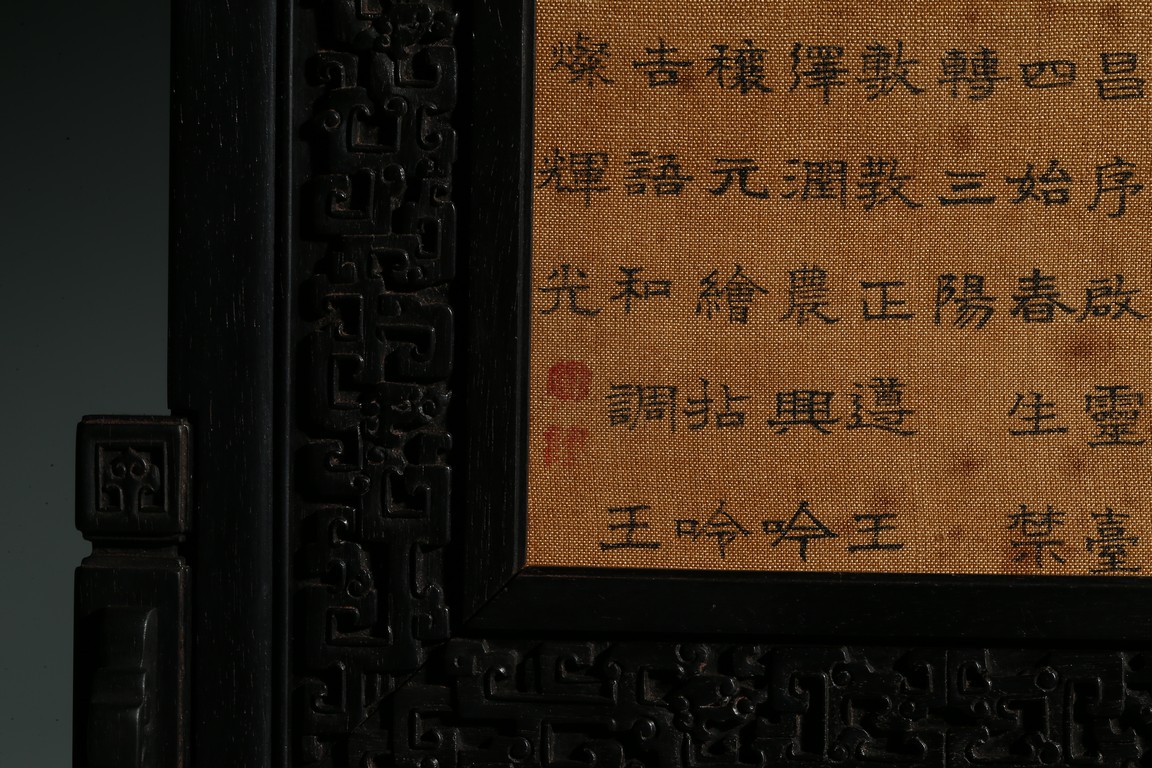 昌序啟靈臺
四始春生禁
轉三陽
敷敎正遵王
澤潤農興吟
穰元繪拈吟
吉語和調王
燦輝光